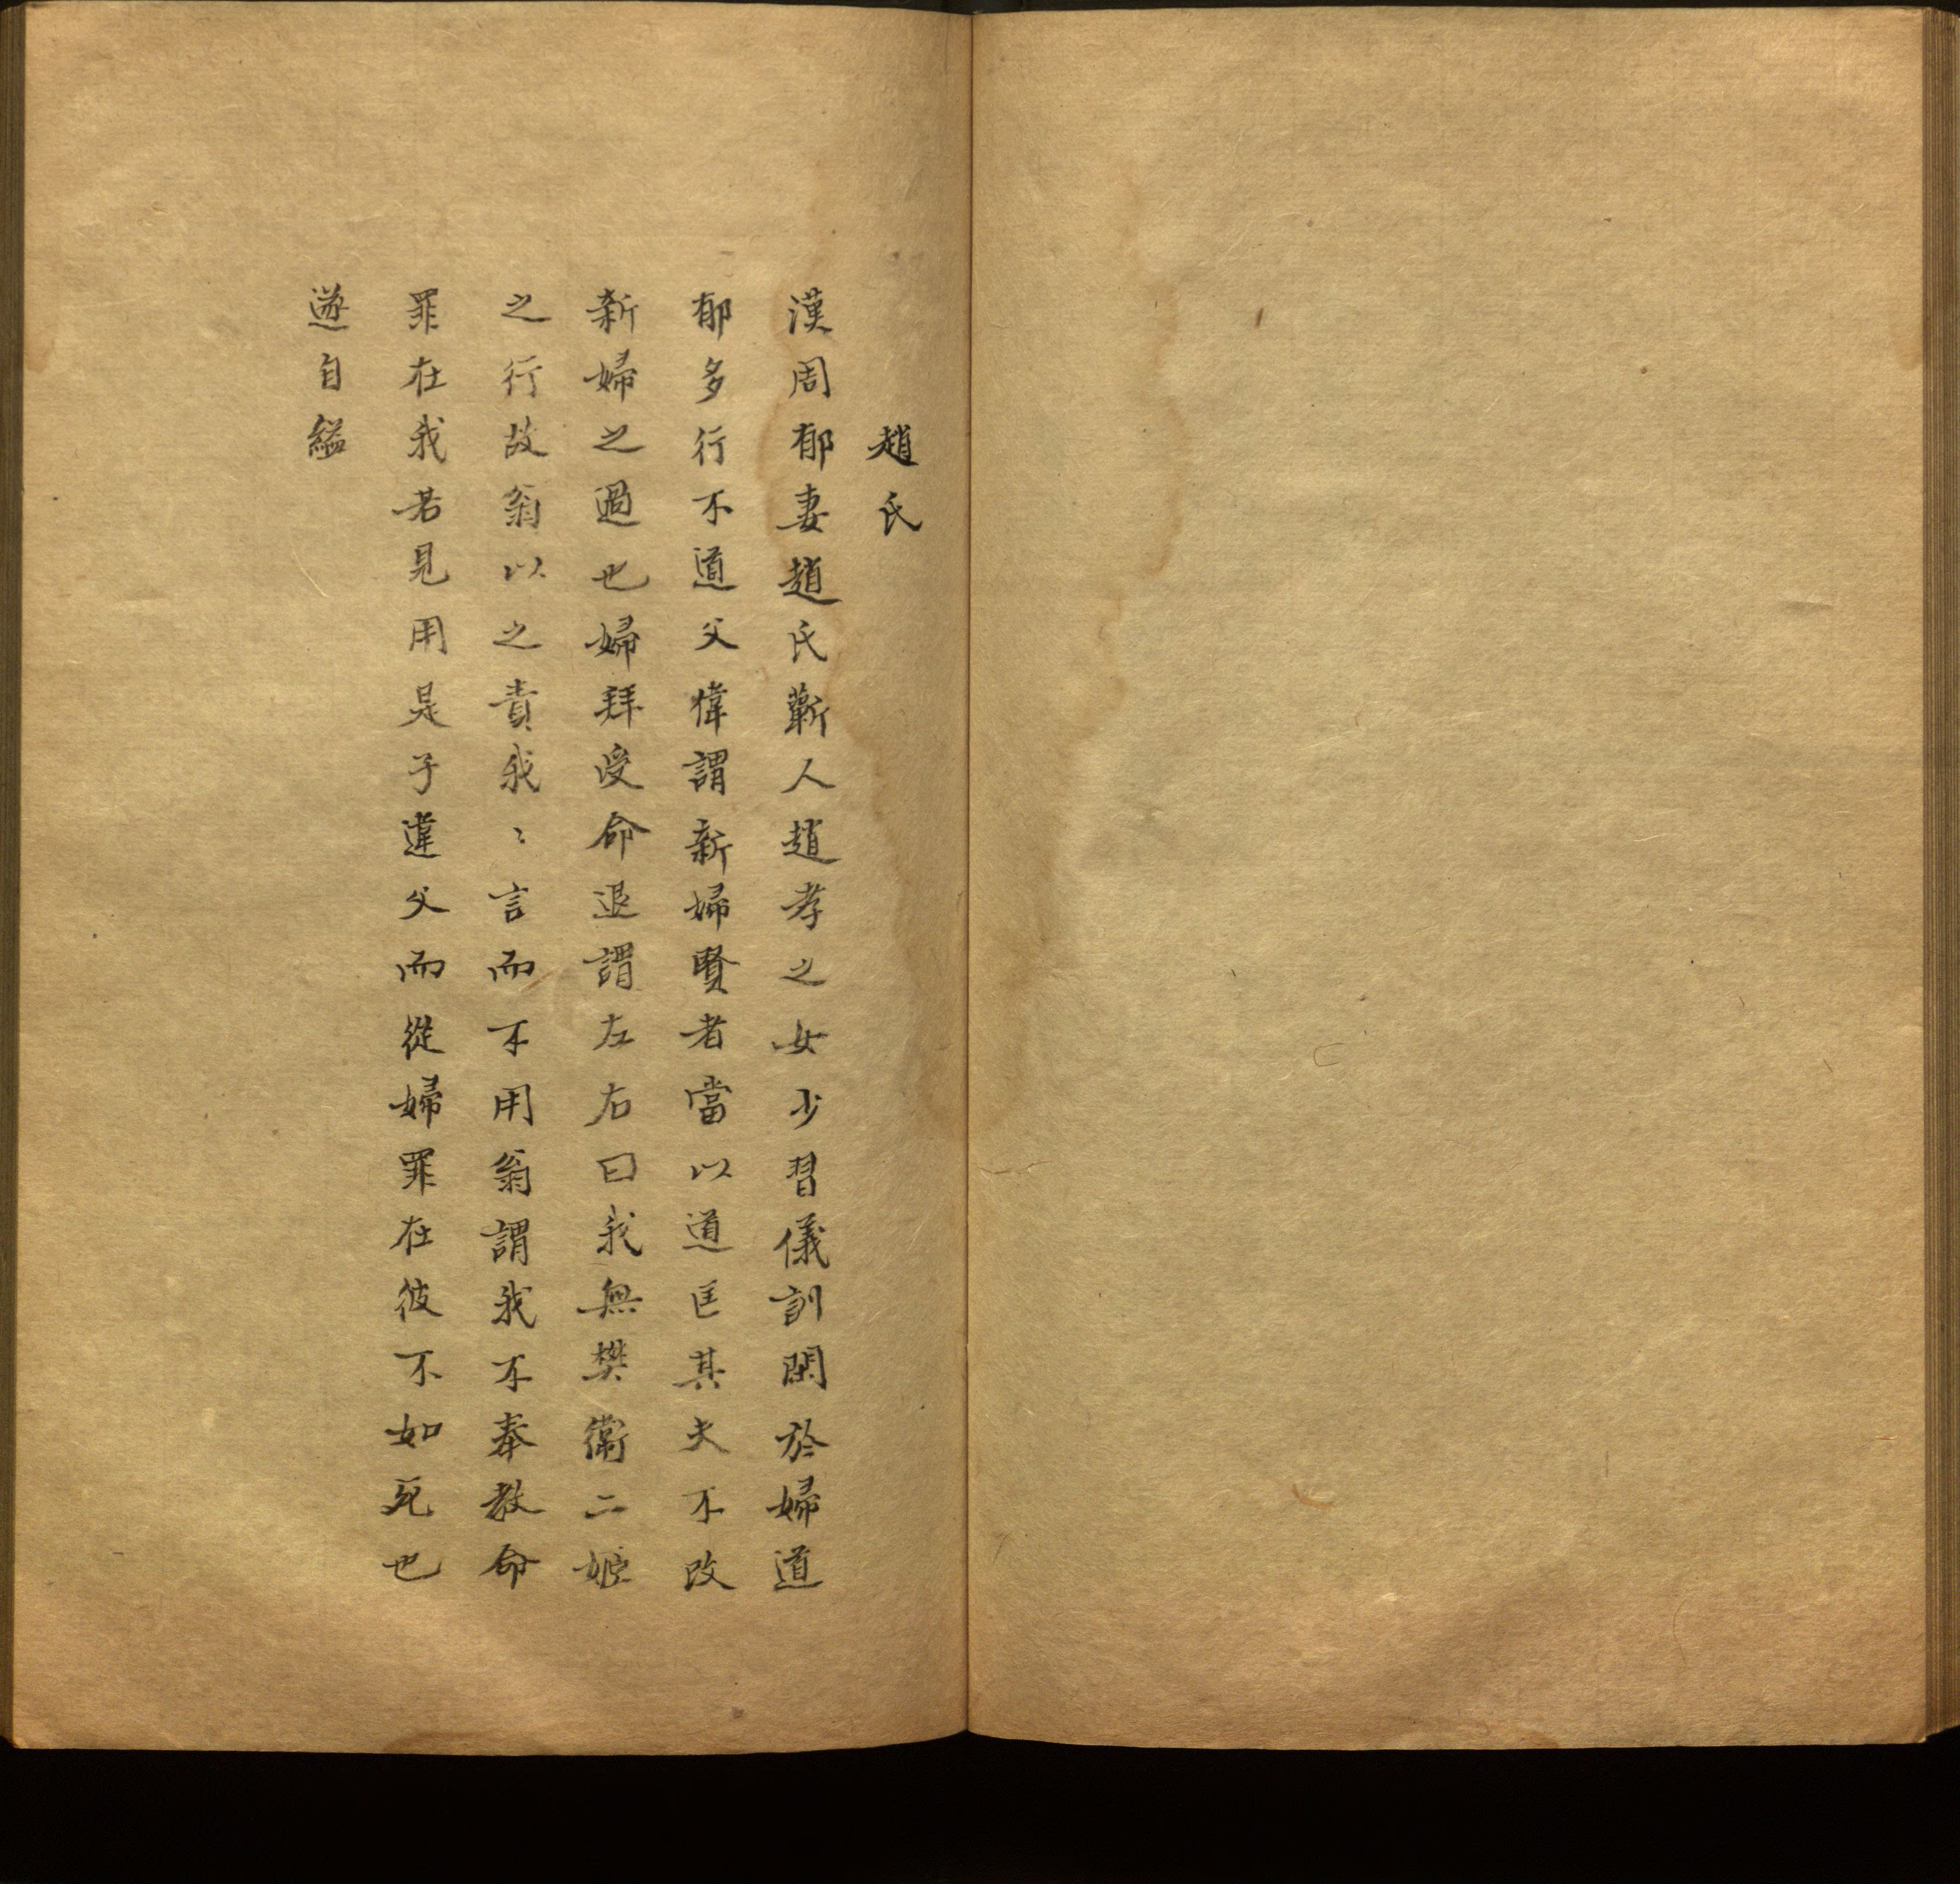 趙氏
漢周郁妻趙氏蘄人趙孝之女少習儀訓閑於婦道
郁多行不道父偉謂新婦賢者當以道匡其夫不改
新婦之過也婦拜受命退謂左右曰我無樊衛二姬
之行故翁以之責我〻言而不用翁謂我不奉教命
罪在我若見用是子違父而從婦罪在彼不如死也
遂自縊